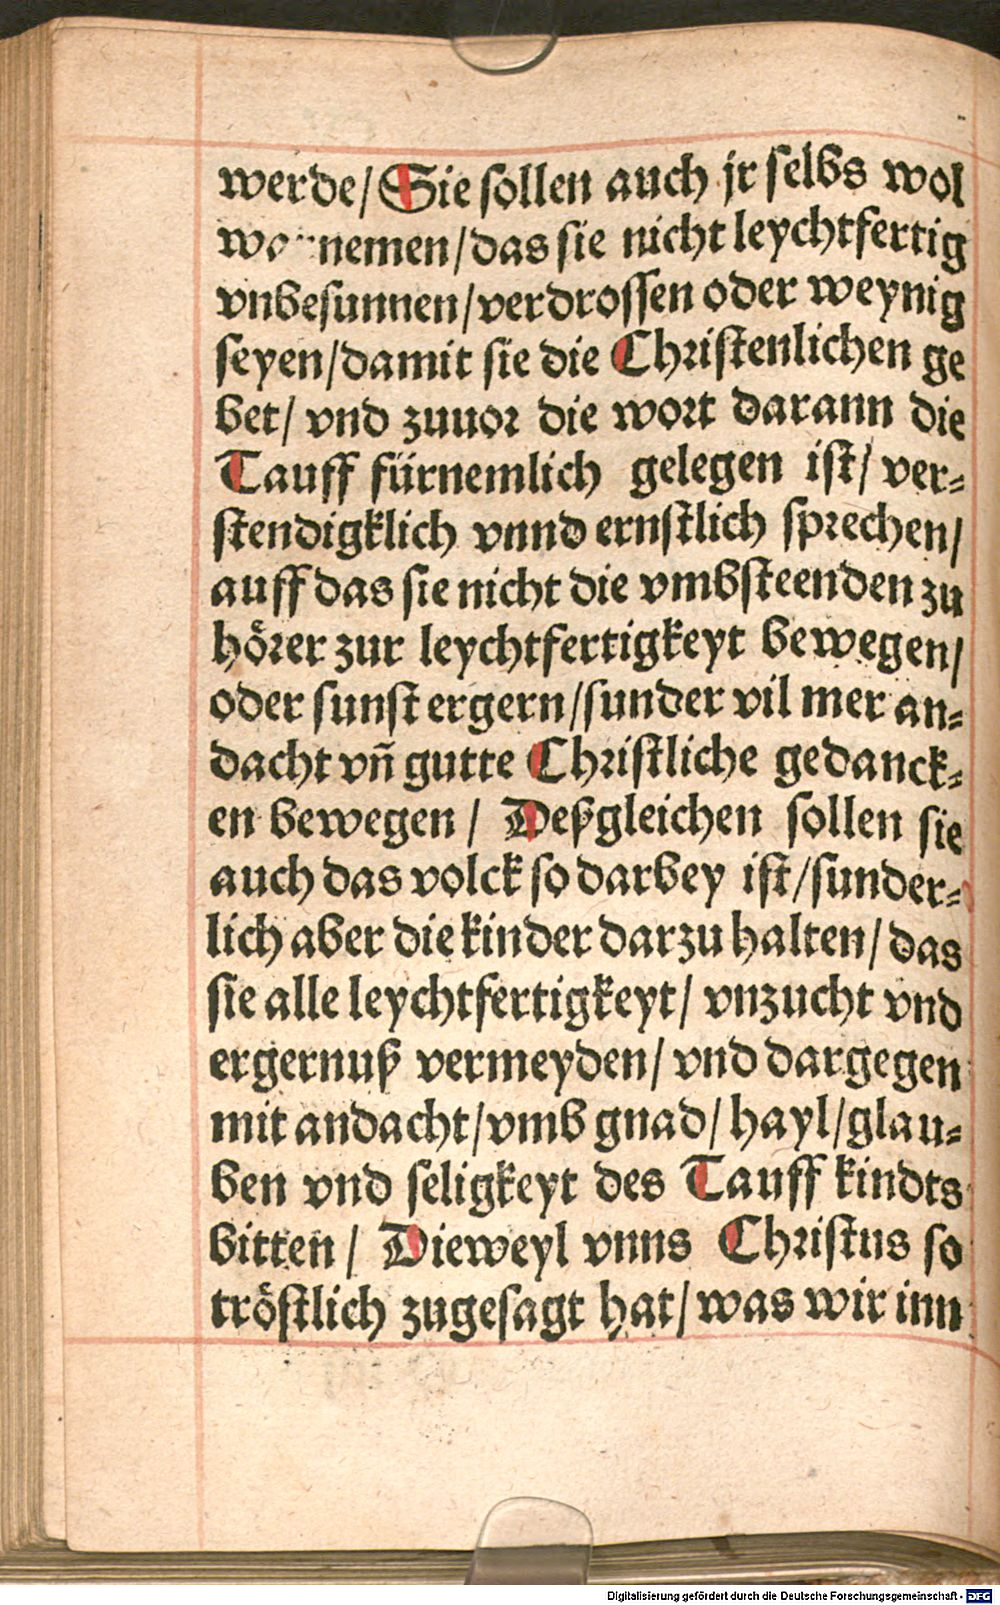 werde/ Sie sollen auch jr selbs wol
nemen/ das sie nicht leychtfertig
vnbesunnen/ verdrossen oder weynig
seyen/ damit sie die Christenlichen ge
bet/ vnd zuuor die wort darann die
Tauff fürnemlich gelegen ist/ ver⸗
stendigklich vnnd ernstlich sprechen/
auff das sie nicht die vmbsteenden zu
hörer zur leychtfertigkeyt bewegen/
oder sunst ergern/ sunder vil mer an⸗
dacht vñ gutte Christliche gedanck⸗
en bewegen/ Deßgleichen sollen sie
auch das volck so darbey ist/ sunder⸗
lich aber die kinder darzu halten/ das
sie alle leychtfertigkeyt/ vnzucht vnd
ergernuß vermeyden/ vnd dargegen
mit andacht/ vmb gnad/ hayl/ glau⸗
ben vnd seligkeyt des Tauff kindts
bitten/ Dieweyl vnns Christus so
tröstlich zugesagt hat/ was wir inn
Digitalisierung gefördert durch die Deutsche Forschungsgemeinschaft - DFG